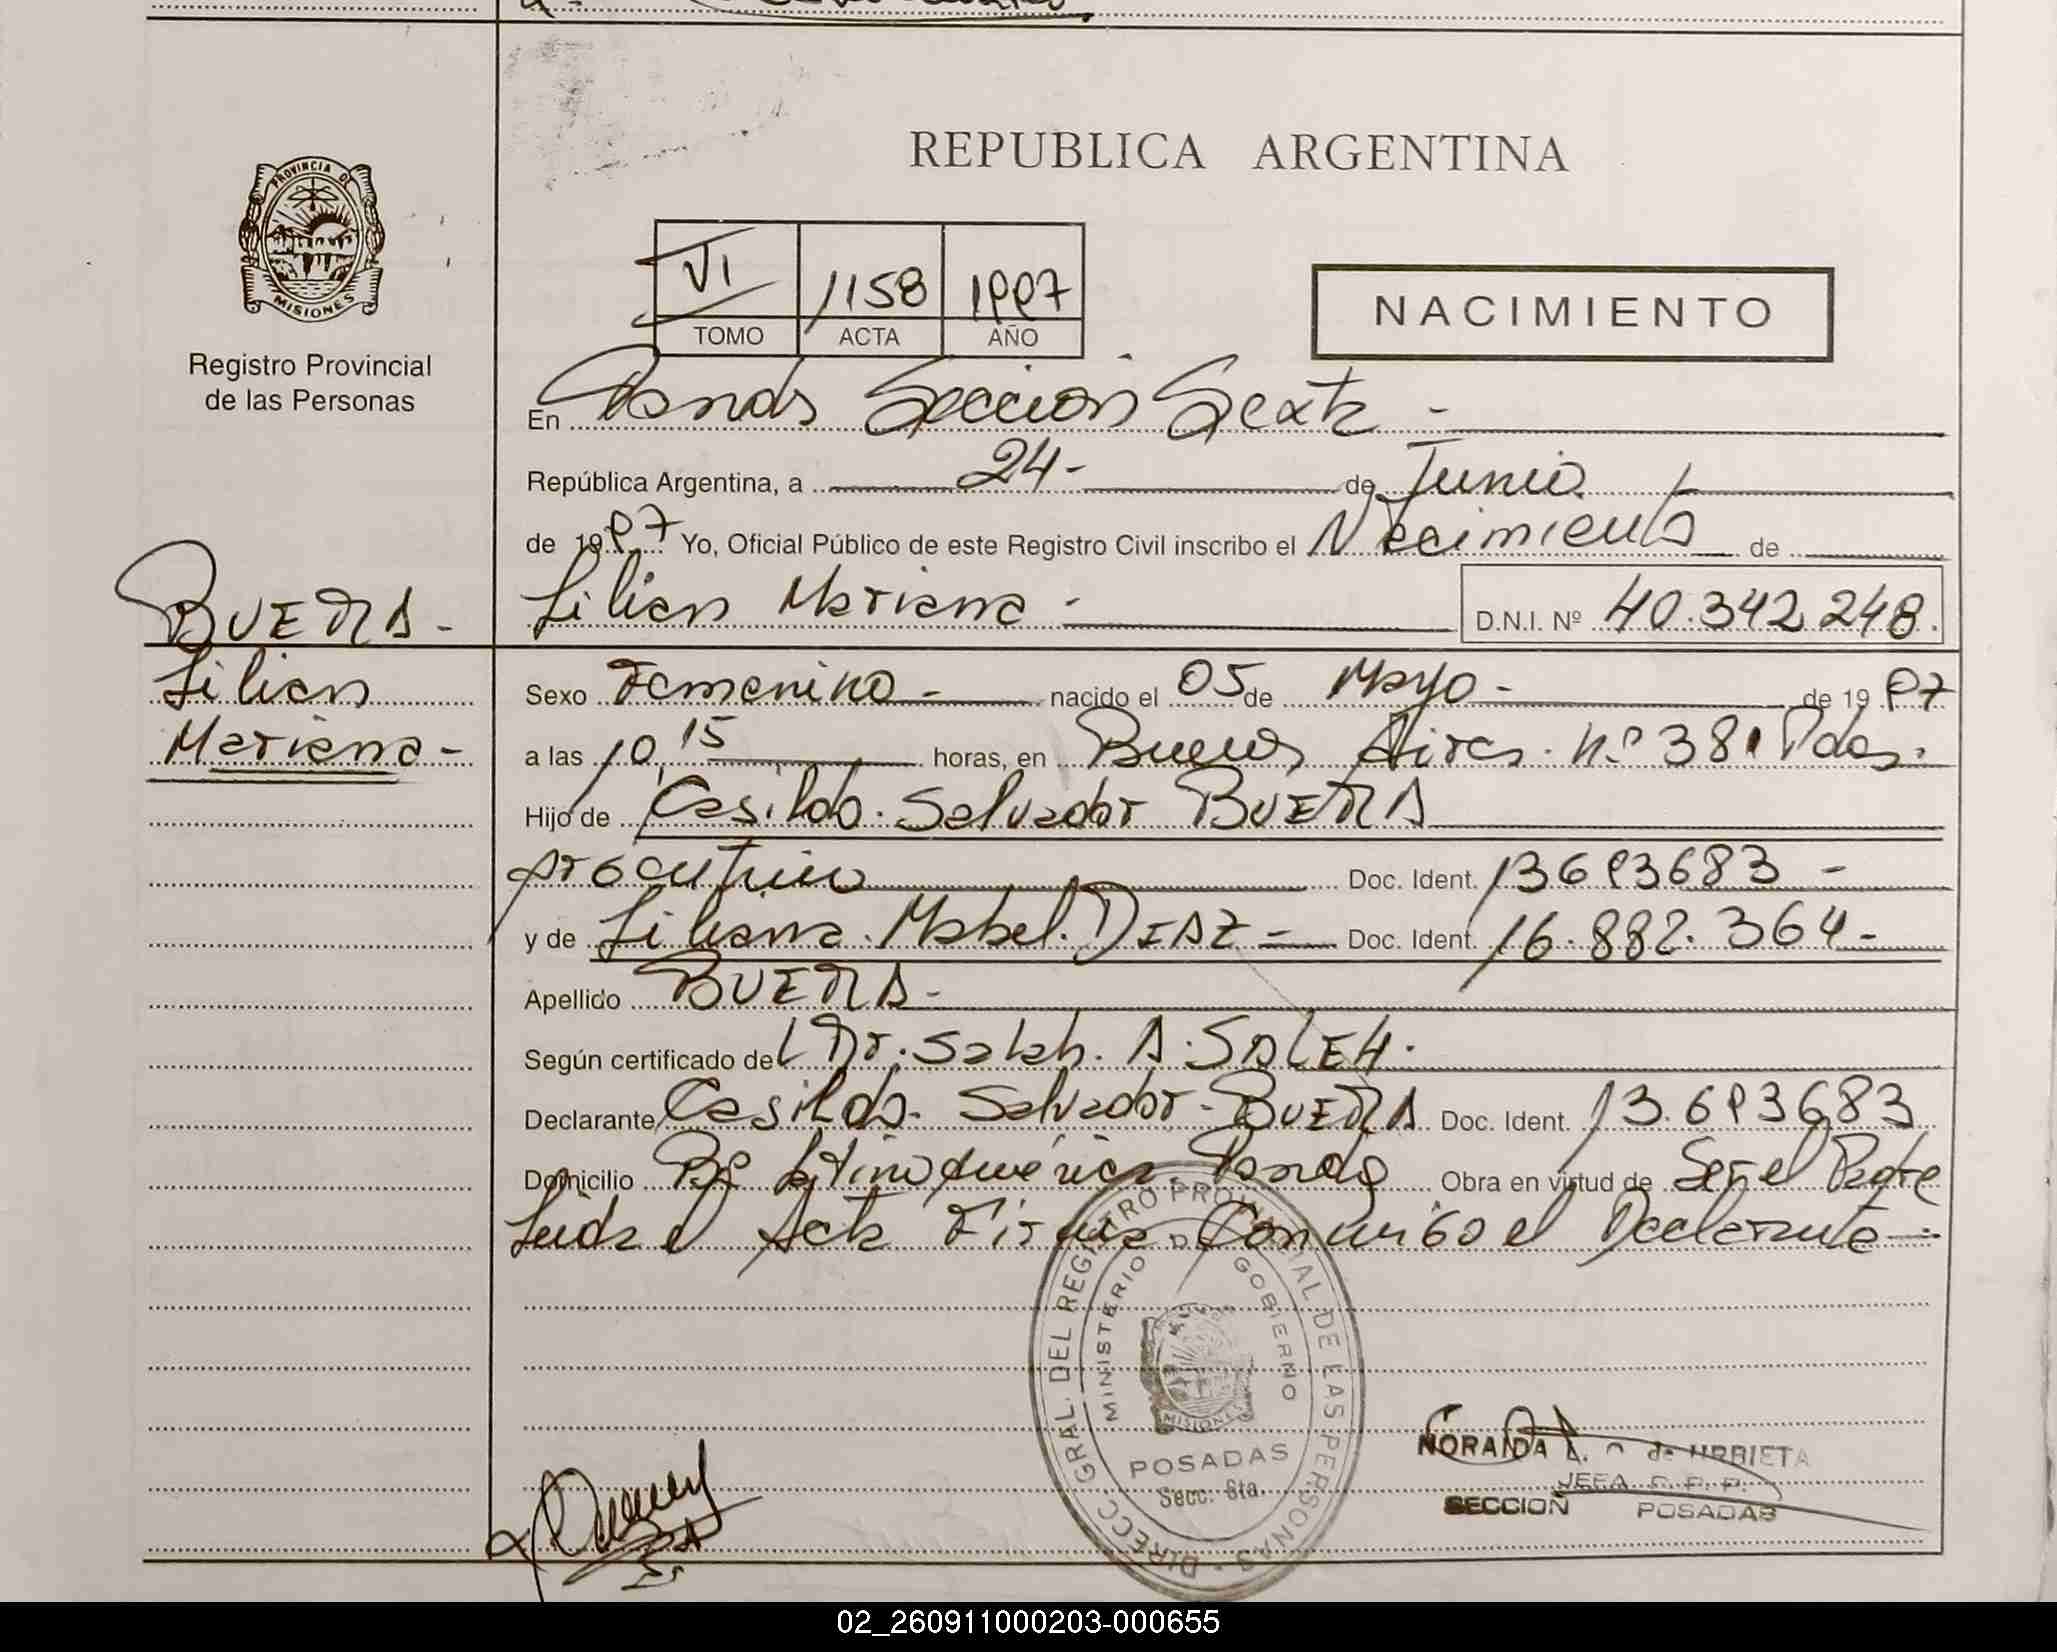 REPUBLICA ARGENTINA
PROVINCIA DE
MISIONES
Registro Provincial
de las Personas
VI 1158 1997
TOMO ACTA AÑO
NACIMIENTO
En Posadas Sección Sexta -
República Argentina, a 24- de Junio
de 1997 Yo, Oficial Público de este Registro Civil inscribo el Nacimiento de
Lilian Mariana - D.N.I. Nº 40.342.248.
BUERA -
Lilian
Mariana -
Sexo Femenino - nacido el 05 de Mayo - de 1997
a las 10,15 horas, en Buenos Aires. nº 381 Pdas.
Hijo de Casildo. Salvador BUERA
argentino Doc. Ident. 13693683 -
y de Liliana. Mabel. DIAZ - Doc. Ident. 16.882.364 -
Apellido BUERA -
Según certificado del Dr. Salah. A. SALEH.
Declarante Casildo. Salvador - BUERA Doc. Ident. 13.693683
Domicilio Bº Latinoamérica Posadas Obra en virtud de Ser el Padre
Leida el Acta Firma Conmigo el Declarante -
DIRECC. GRAL. DEL REGISTRO PROVINCIAL DE LAS PERSONAS
MINISTERIO DE GOBIERNO
MISIONES
POSADAS
Secc. 6ta.
NORAIDA de URRIETA
JEFA
SECCION POSADAS
02_260911000203-000655